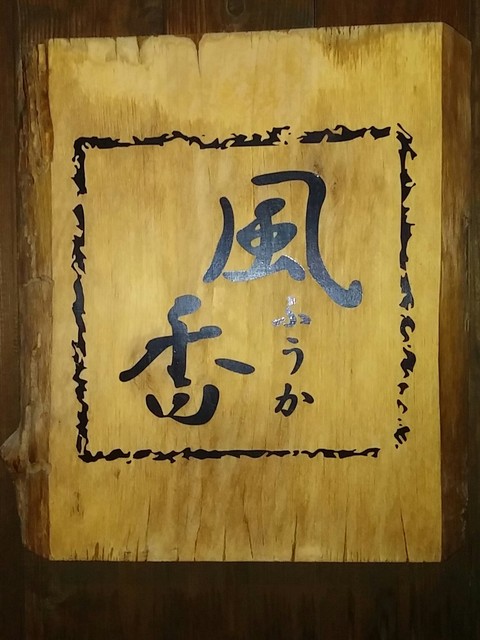 風
香
ふうか